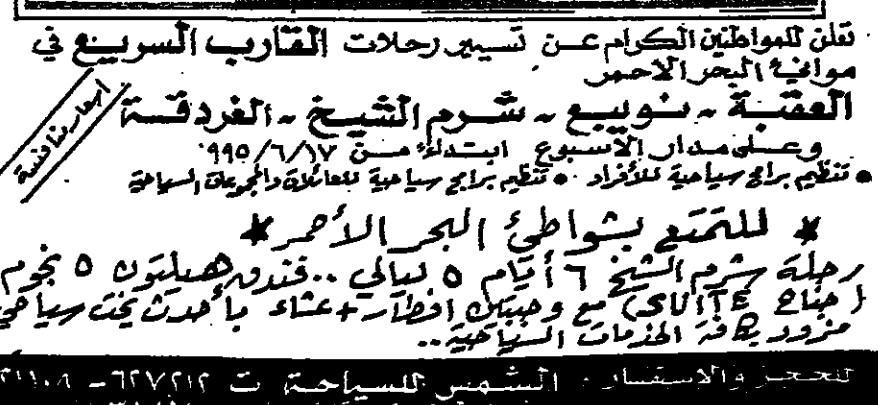 نعلن للمواطنين الكرام عن تسيير رحلات القارب السريع في
موانئ البحر الاحمر
العقبة - نويبع - شرم الشيخ - الغردقة
أسعارنا منافسة
وعلى مدار الاسبوع ابتداءً من ٩٩٥/٦/١٧
• تنظيم برامج سياحية للأفراد • تنظيم برامج سياحية للعائلات والمجموعات السياحية
* للتمتع بشواطئ البحر الأحمر *
رحلة شرم الشيخ ٦ أيام ٥ ليالي .. فندق هيلتون ٥ نجوم
(جناح) مع وجبتي افطار + عشاء بأحدث يخت سياحي
مزود بكافة الخدمات السياحية ..
للحجز والاستفسار : الشمس للسياحة ت ٦٢٧٢١٢ -